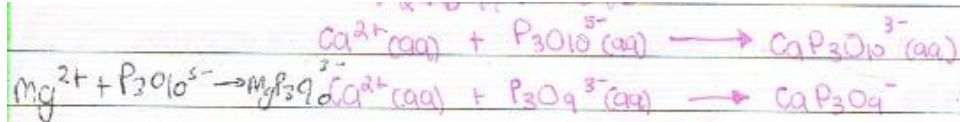 Ca²⁺(aq) + P₃O₁₀⁵⁻(aq) → CaP₃O₁₀³⁻(aq)
Mg²⁺ + P₃O₁₀⁵⁻ → MgP₃O₁₀³⁻ Ca²⁺(aq) + P₃O₉³⁻(aq) → CaP₃O₉⁻